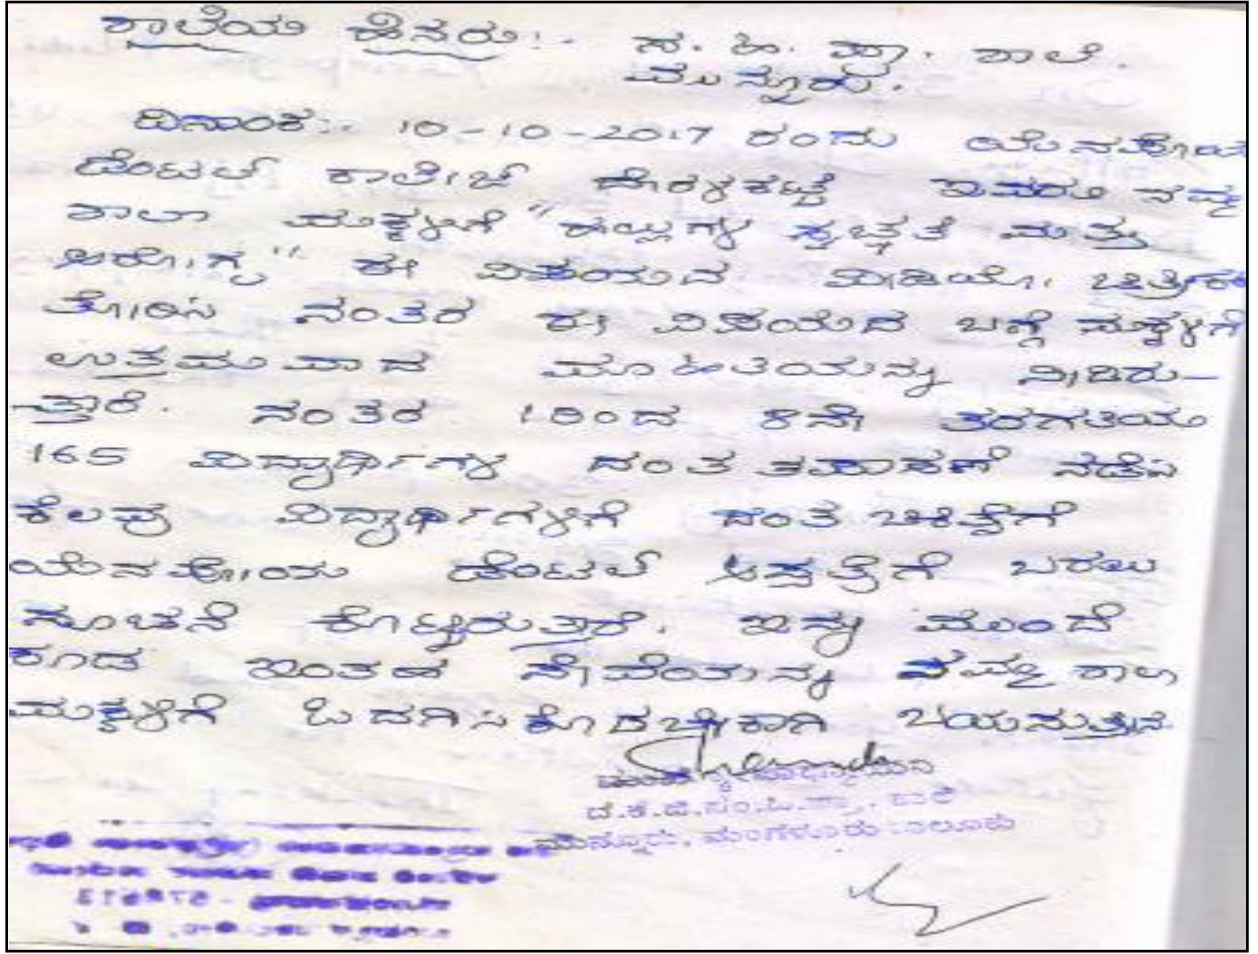 ಶಾಲೆಯ ಹೆಸರು:- ಸ. ಹಿ. ಪ್ರಾ. ಶಾಲೆ.
ಮುನ್ನೂರು.
ದಿನಾಂಕ:- 10-10-2017 ರಂದು ಯೆನಪೋಯ
ಡೆಂಟಲ್ ಕಾಲೇಜ್ ದೇರಳಕಟ್ಟೆ ಇವರು ನಮ್ಮ
ಶಾಲಾ ಮಕ್ಕಳಿಗೆ "ಹಲ್ಲುಗಳ ಸ್ವಚ್ಛತೆ ಮತ್ತು
ಆರೋಗ್ಯ" ಈ ವಿಷಯದ ವೀಡಿಯೋ
ತೋರಿಸಿ ನಂತರ ಈ ವಿಷಯದ ಬಗ್ಗೆ ಮಕ್ಕಳಿಗೆ
ಉತ್ತಮವಾದ ಮಾಹಿತಿಯನ್ನು ನೀಡಿರು-
ತ್ತಾರೆ. ನಂತರ 1ರಿಂದ 8ನೇ ತರಗತಿಯ
165 ವಿದ್ಯಾರ್ಥಿಗಳ ದಂತ ತಪಾಸಣೆ ನಡೆಸಿ
ಕೆಲವು ವಿದ್ಯಾರ್ಥಿಗಳಿಗೆ ದಂತ ಚಿಕಿತ್ಸೆಗೆ
ಯೆನಪೋಯ ಡೆಂಟಲ್ ಆಸ್ಪತ್ರೆಗೆ ಬರಲು
ಸೂಚನೆ ಕೊಟ್ಟಿರುತ್ತಾರೆ. ಇನ್ನು ಮುಂದೆ
ಕೂಡ ಇಂತಹ ಸೇವೆಯನ್ನು ನಮ್ಮ ಶಾಲಾ
ಮಕ್ಕಳಿಗೆ ಒದಗಿಸಿಕೊಡಬೇಕಾಗಿ ಬಯಸುತ್ತೇನೆ
ದ.ಕ.ಜಿ.ಪಂ.ಹಿ.ಪ್ರಾ. ಶಾಲೆ
ಮುನ್ನೂರು, ಮಂಗಳೂರು ತಾಲೂಕು